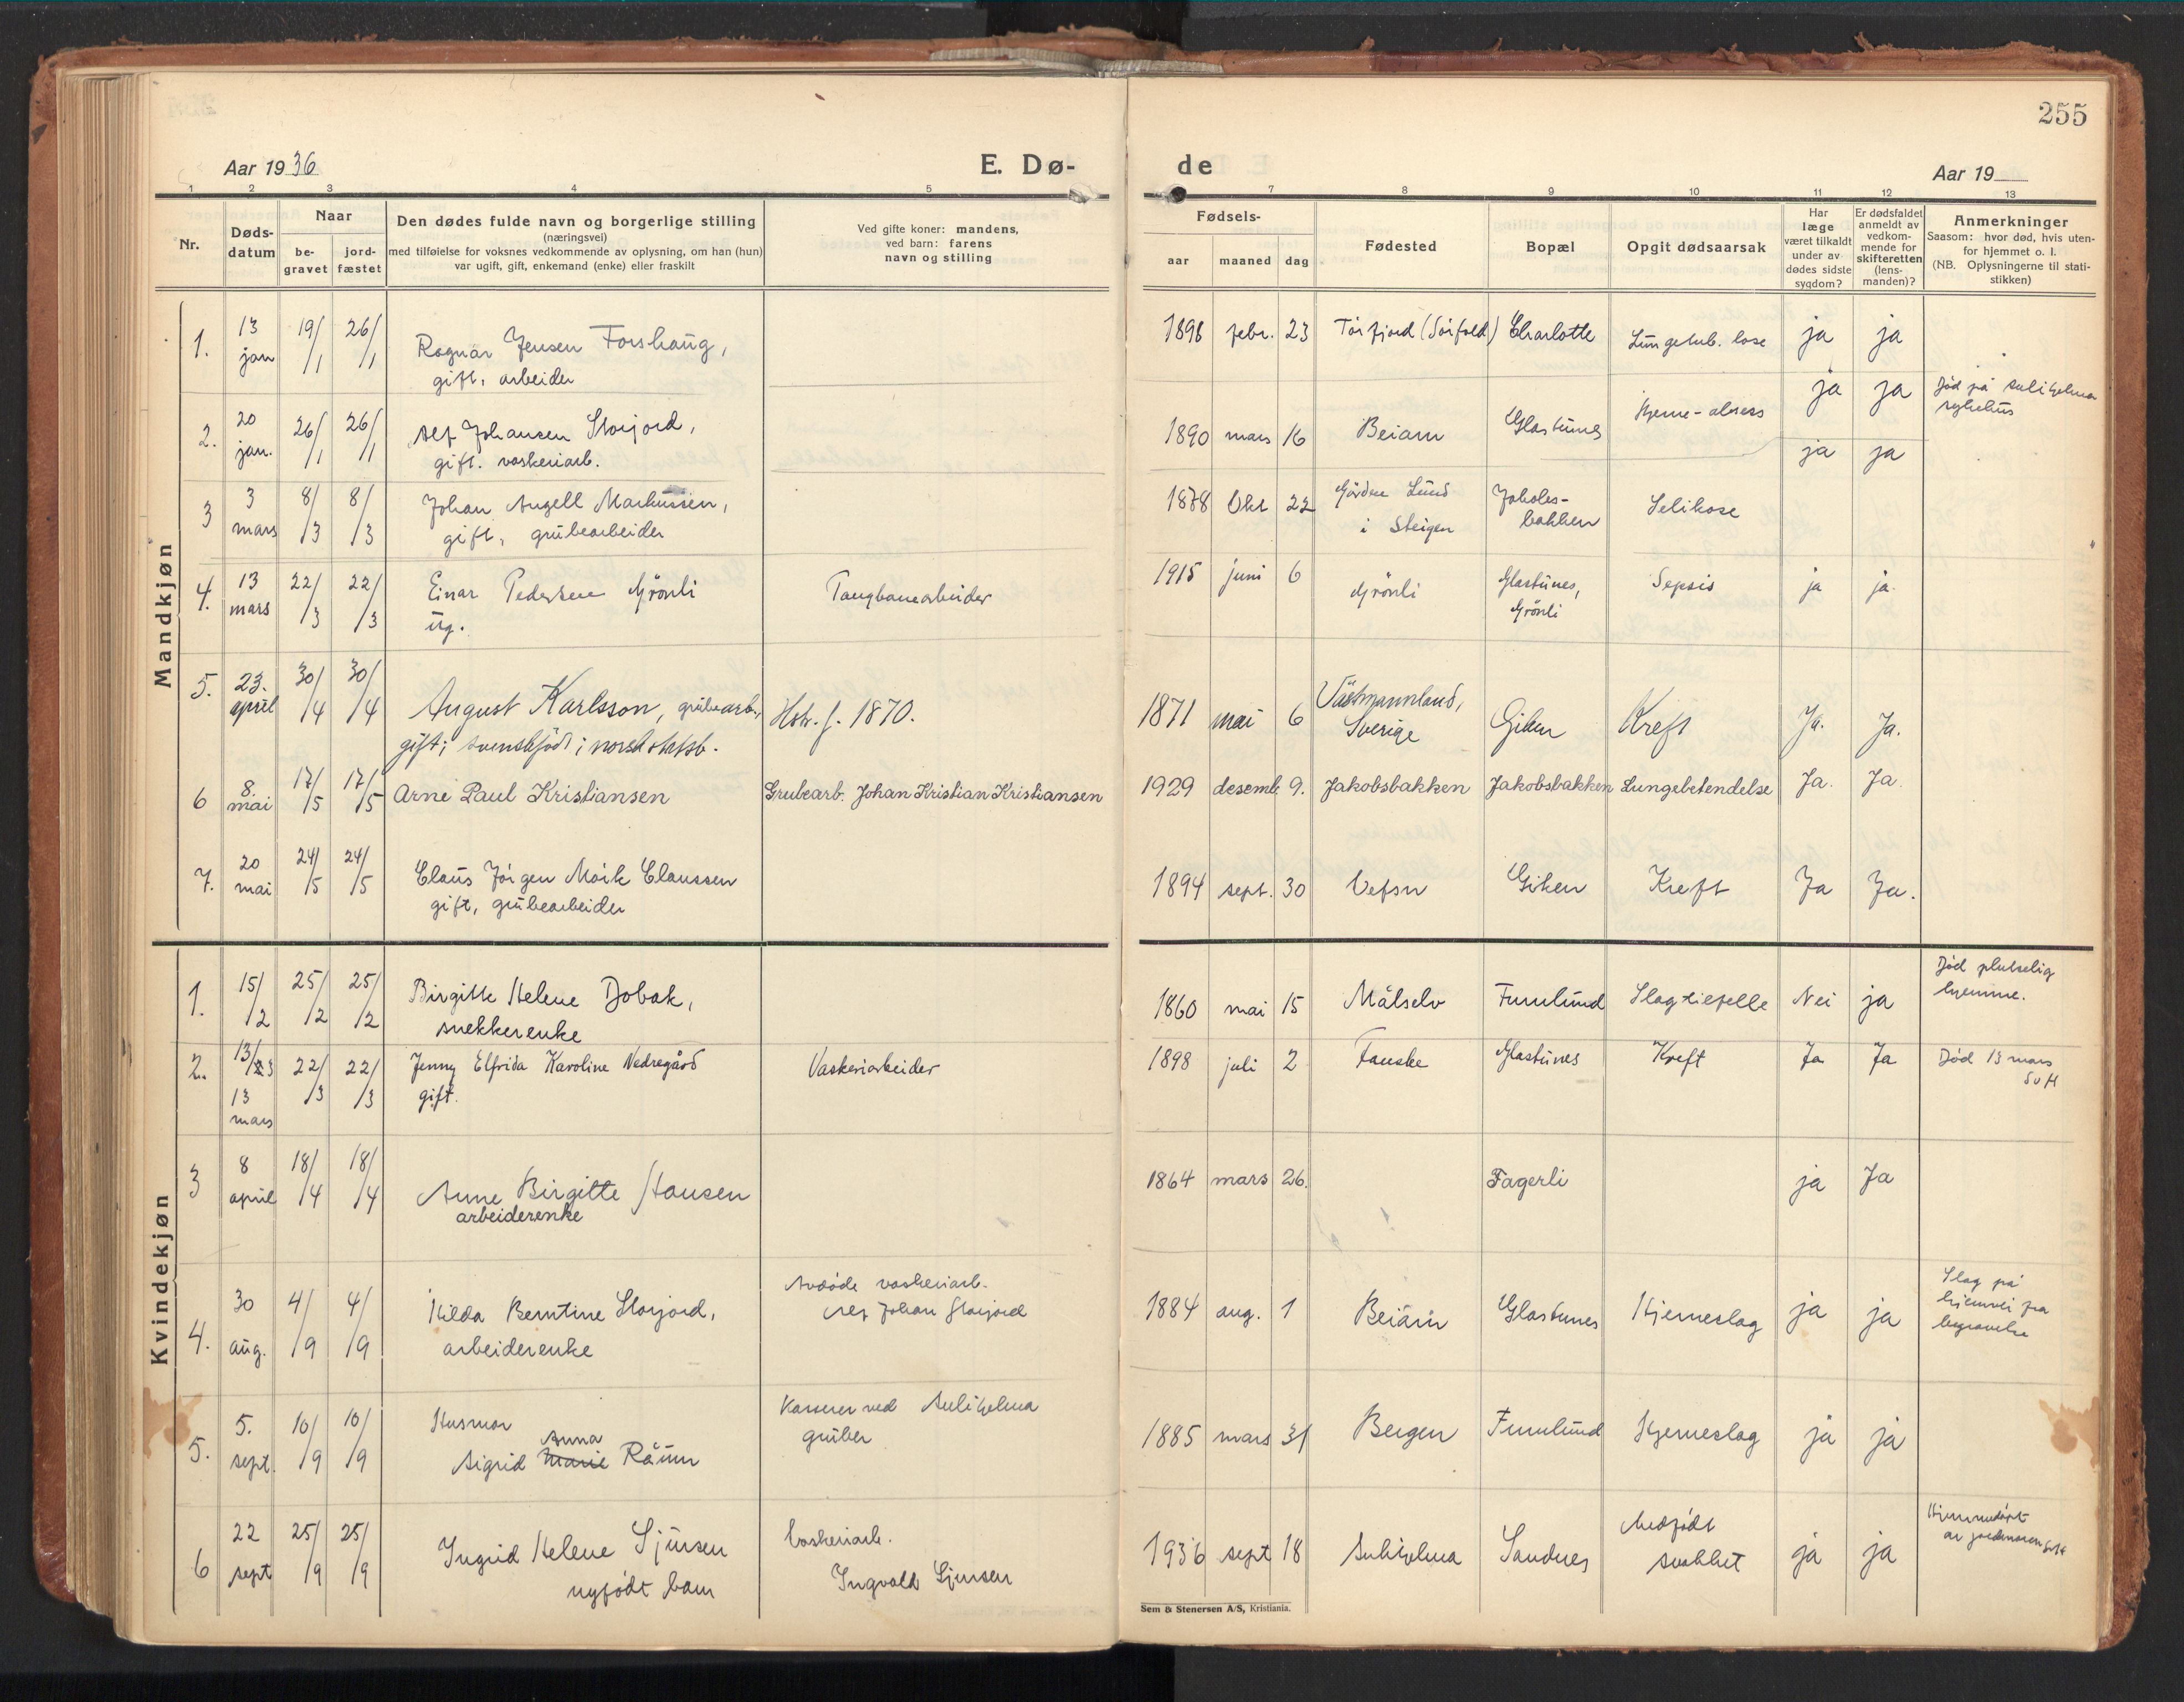 255
Aar 1936
E. Dø-
de
Aar 19
1 2 3 4 5
7 8 9 10 11 12 13
Nr.
Døds-
datum
Naar
be-
gravet
jord-
fæstet
Den dødes fulde navn og borgerlige stilling
(næringsvei)
med tilføielse for voksnes vedkommende av oplysning, om han (hun)
var ugift, gift, enkemand (enke) eller fraskilt
Ved gifte koner: mandens,
ved barn: farens
navn og stilling
Fødsels-
aar maaned dag
Fødested
Bopæl
Opgit dødsaarsak
Har
læge
været tilkaldt
under av-
dødes sidste
sygdom?
Er dødsfaldet
anmeldt av
vedkom-
mende for
skifteretten
(lens-
manden)?
Anmerkninger
Saasom: hvor død, hvis uten-
for hjemmet o. l.
(NB. Oplysningerne til stati-
stikken)
Mandkjøn
1. 13 jan 19/1 26/1 Ragnar Jensen Forshaug, 1898 febr. 23 Tørfjord (Sørfold) Charlotte Lungetub. lose ja ja
gift, arbeider
2. 20 jan. 26/1 26/1 Alf Johansen Storjord, 1890 mars 16 Beiarn Glastunes Hjerne-absess ja ja Død på Sulitjelma
sykehus
gift. vaskeriarb.
ja ja
3 3 mars 8/3 8/3 Johan Angell Markussen, 1878 Okt 22 Gården Lund Jakobs- Silikose
gift, grubearbeider i Steigen bakken
4. 13 mars 22/3 22/3 Einar Pedersen Grönli Taugbanearbeider 1915 juni 6 Grönli Glastunes, Sepsis ja ja.
ug. Grönli
5. 23. april 30/4 30/4 August Karlsson, grubearb., Hstr. f. 1870. 1871 mai 6 Västmannland, Giken Kreft Ja. Ja.
gift; svenskfödt; norsk statsb. Sverige
6 8. mai 17/5 17/5 Arne Paul Kristiansen Grubearb. Johan Kristian Kristiansen 1929 desemb. 9. Jakobsbakken Jakobsbakken Lungebetendelse Ja. Ja.
7. 20 mai 24/5 24/5 Claus Jörgen Moik Claussen 1894 sept. 30 Vefsn Giken Kreft Ja Ja.
gift, grubearbeider
Kvindekjøn
1. 15/2 25/2 25/2 Birgitte Helene Dobak, 1860 mai 15 Målselv Furulund Slagtilfelle Nei ja Død plutselig
hjemme.
snekkerenke
2. 13/3 22/3 22/3 Jenny Elfrida Karoline Nedregård Vaskeriarbeider 1898 juli 2 Fauske Glastunes Kreft Ja Ja Død 13 mars
SvH
13 mars gift.
3 8 april 18/4 18/4 Anne Birgitte Hansen 1864 mars 26. Fagerli ja Ja
arbeiderenke
4. 30 aug. 4/9 4/9 Hilda Berntine Storjord, Avdöde vaskeriarb. 1884 aug. 1 Beiarn Glastunes Hjerneslag ja ja Slag på
hjemvei fra
begravelse
arbeiderenke Alf Johan Storjord
5. 5. sept. 10/9 10/9 Husmor Kasserer ved Sulitjelma 1885 mars 31 Bergen Furulund Hjerneslag ja ja
gruber
Anna
Sigrid Marie Råum
6 22 sept 25/9 25/9 Ingrid Helene Sjursen Vaskeriarb. 1936 sept 18 Sulitjelma Sandnes Medfødt ja ja Hjemmedøpt
av jordmoren
nyfödt barn Ingvald Sjursen svakhet
Sem & Stenersen A/S, Kristiania.